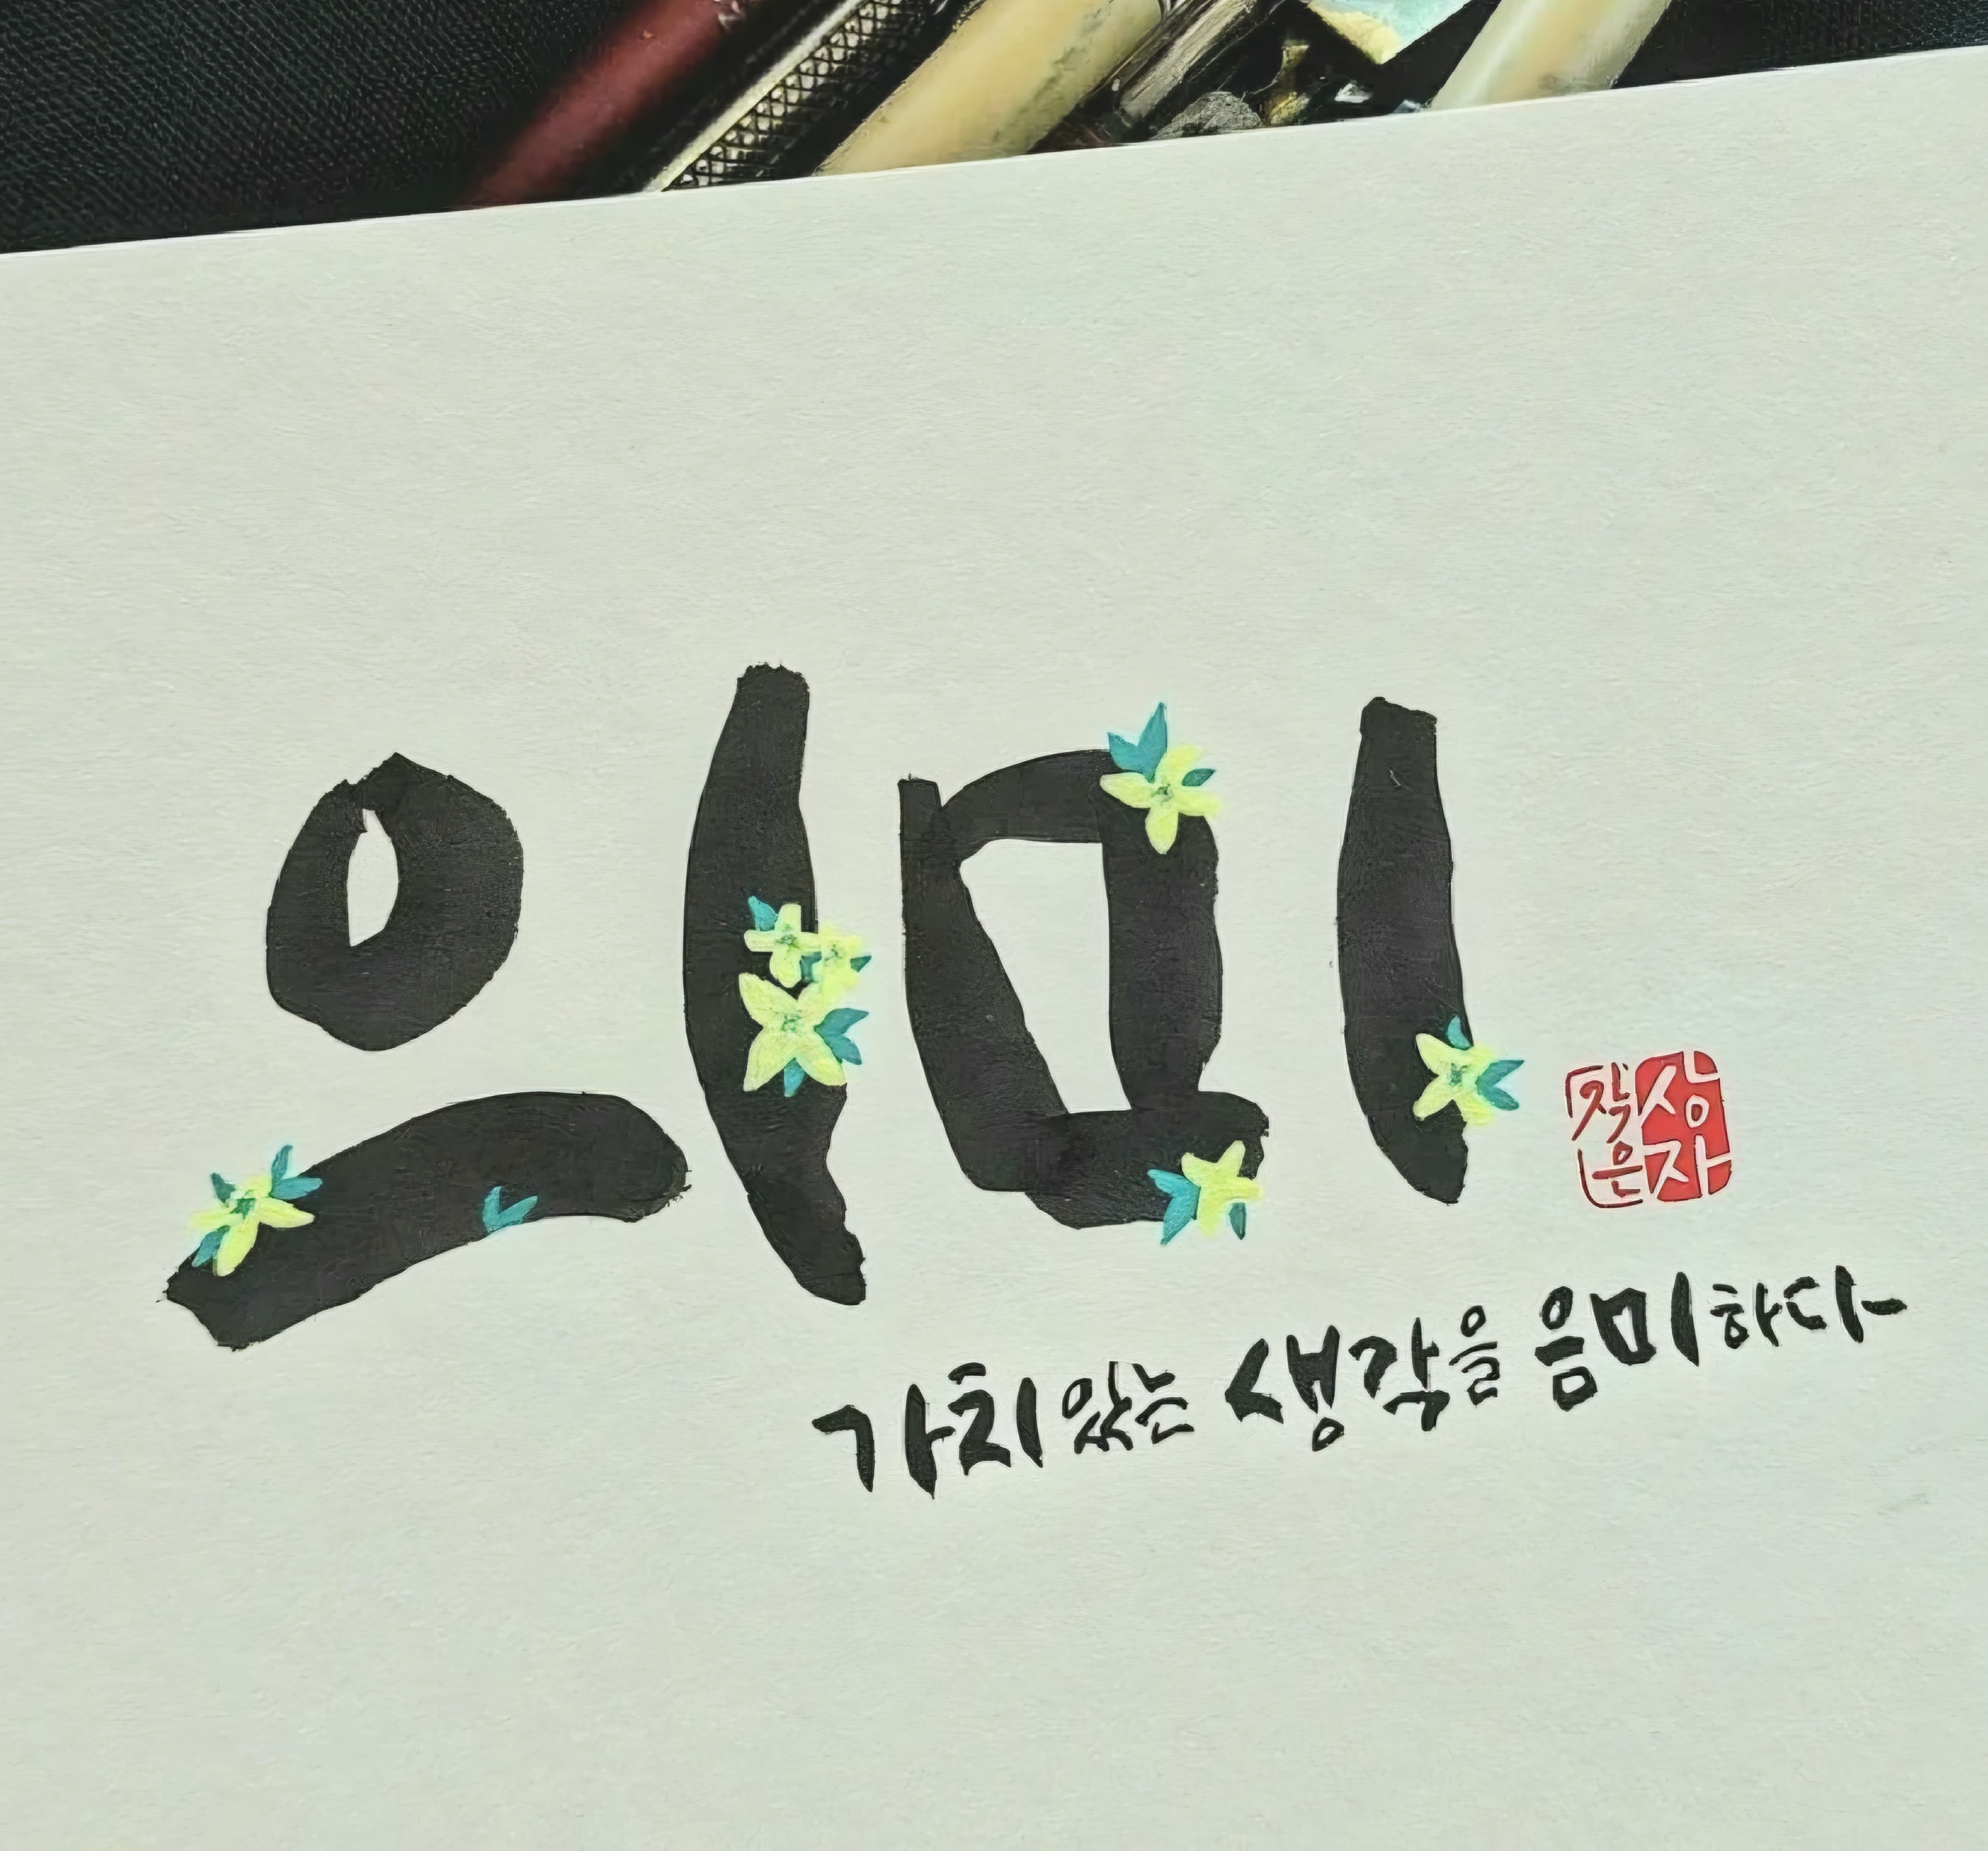 의미
작은
상자
가치있는 생각을 음미하다